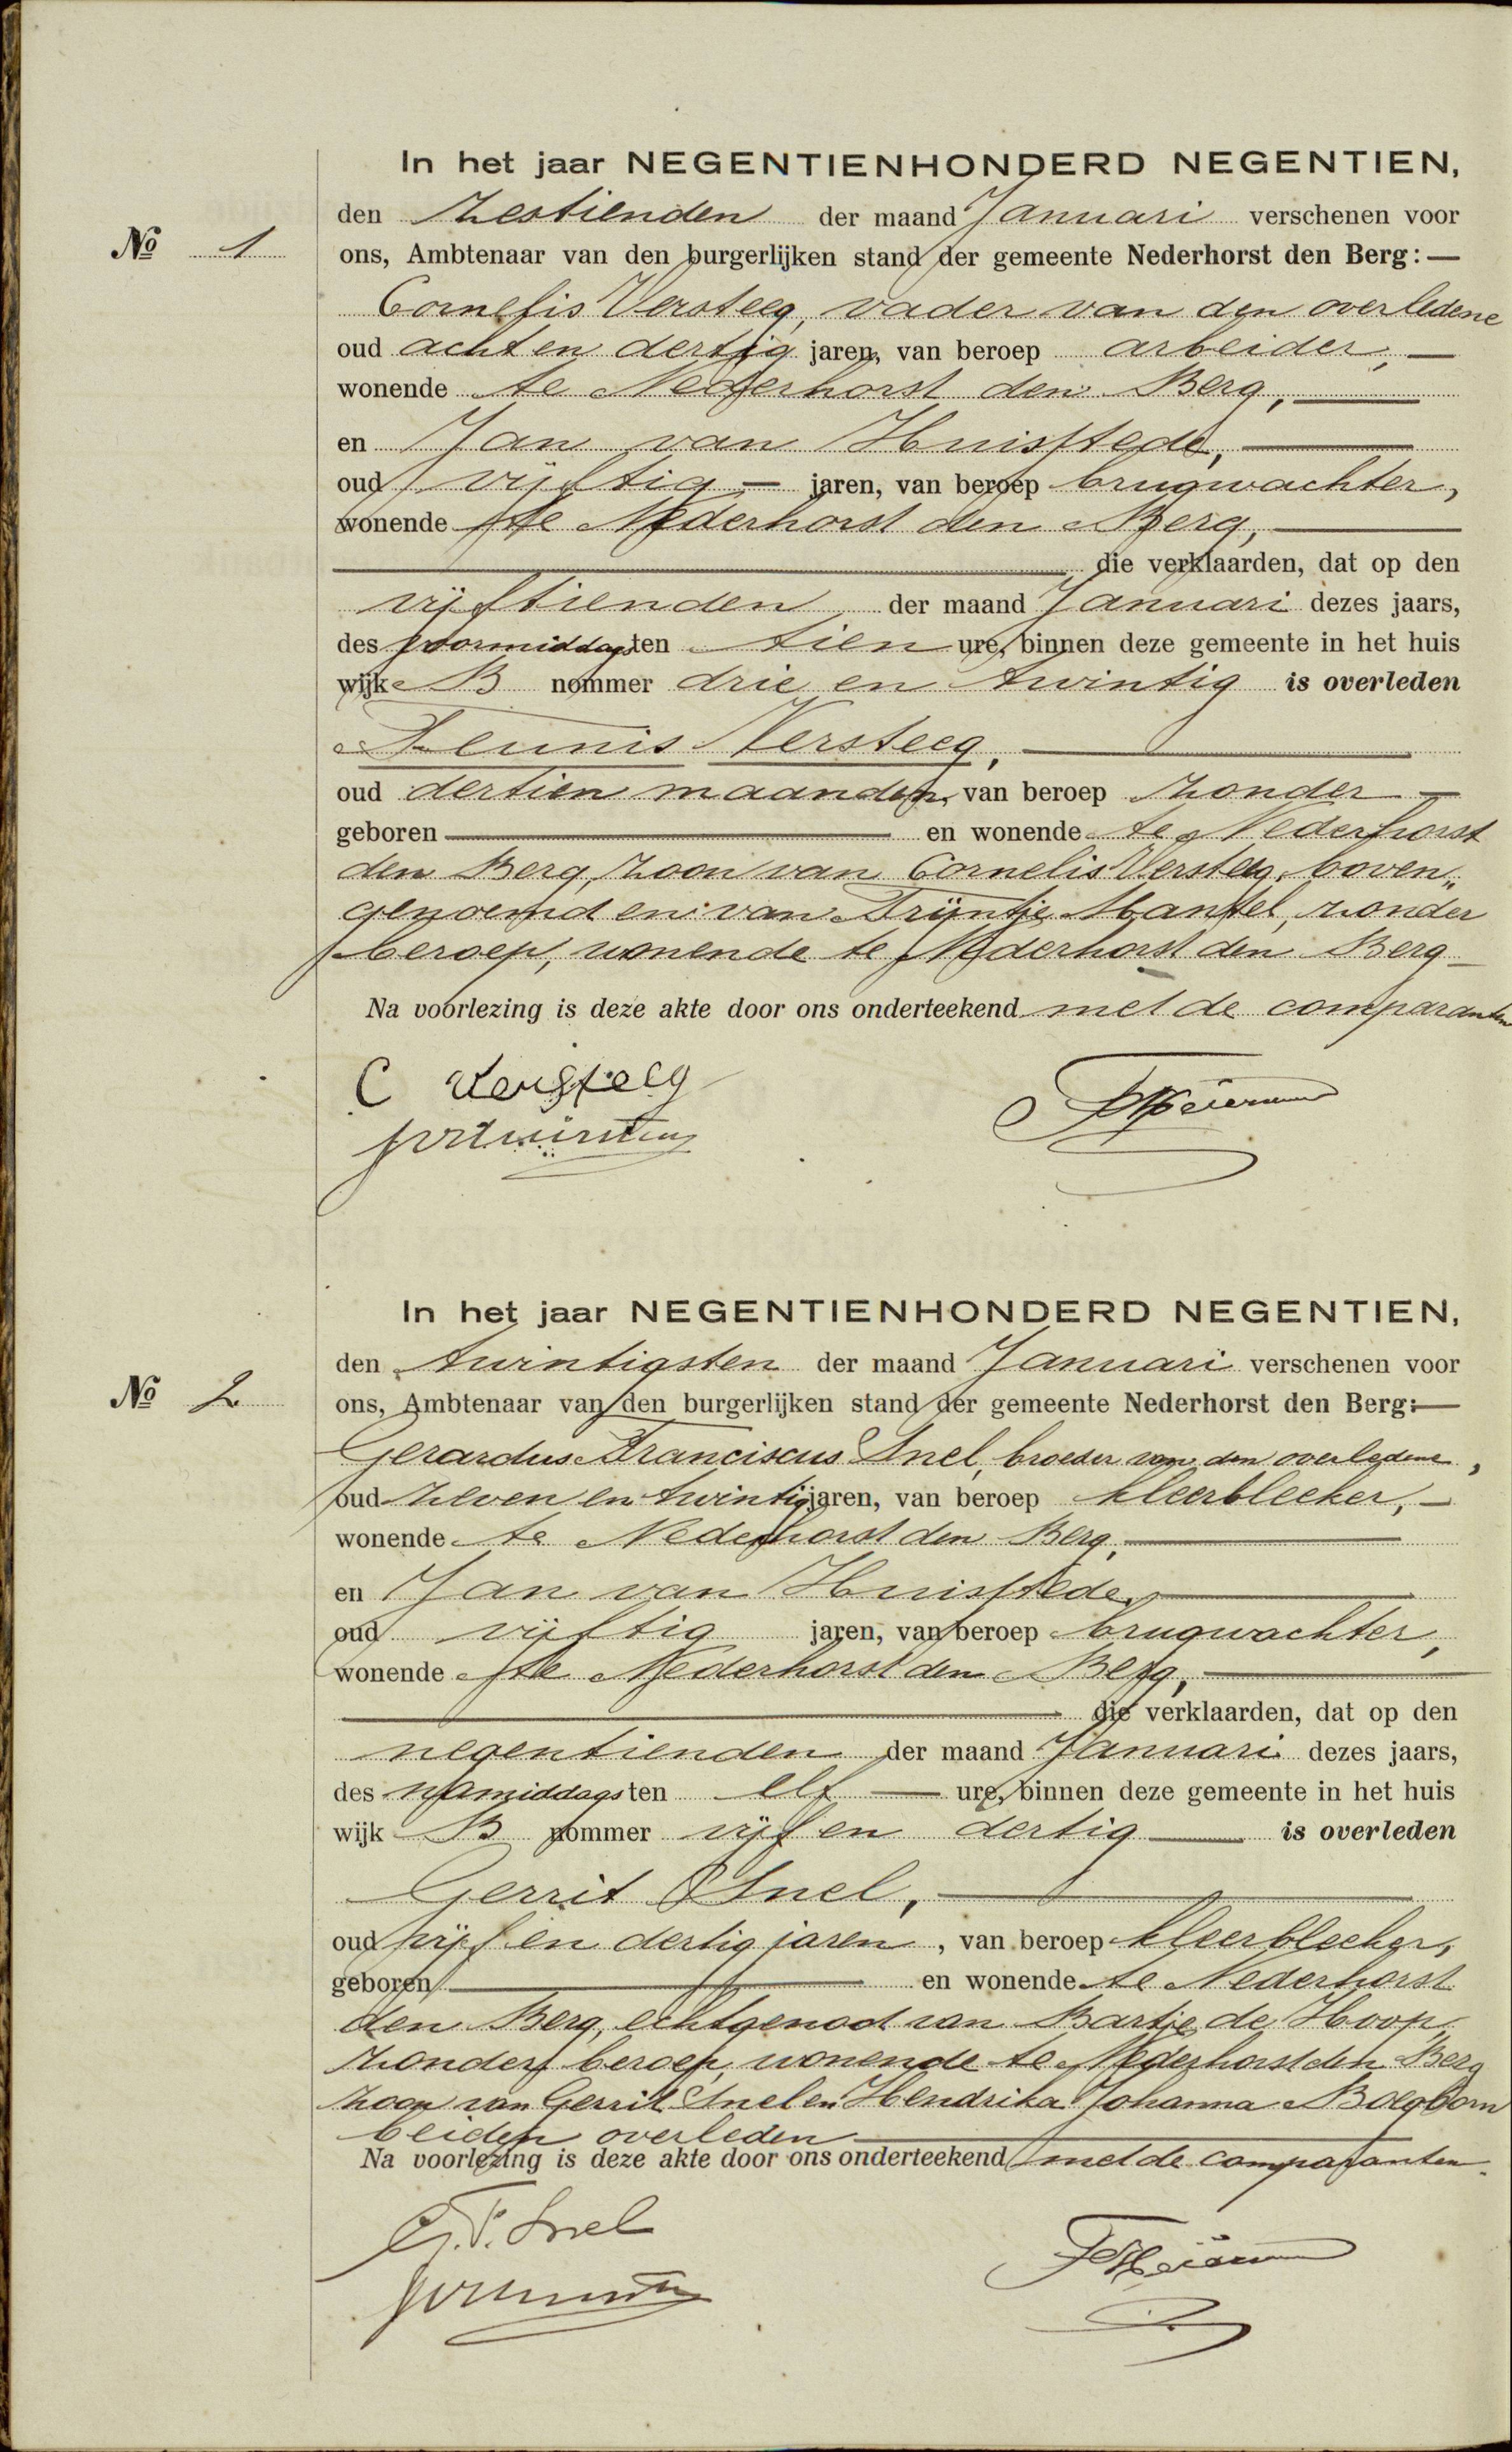 In het jaar NEGENTIENHONDERD NEGENTIEN,
den zestienden der maand Januari verschenen voor
No 1
ons, Ambtenaar van den burgerlijken stand der gemeente Nederhorst den Berg: —
Cornelis Versteeg, vader van den overledene
oud acht en dertig jaren, van beroep arbeider, —
wonende te Nederhorst den Berg, —
en Jan van Huisstede, —
oud vijftig — jaren, van beroep brugwachter,
wonende te Nederhorst den Berg, —
— die verklaarden, dat op den
vijftienden der maand Januari dezes jaars,
des voormiddags ten tien ure, binnen deze gemeente in het huis
wijk B nommer drie en twintig is overleden
Teunis Versteeg, —
oud dertien maanden, van beroep zonder —
geboren — en wonende te Nederhorst
den Berg, zoon van Cornelis Versteeg, boven„
genoemd en van Trijntje Mantel, zonder
beroep, wonende te Nederhorst den Berg —
Na voorlezing is deze akte door ons onderteekend met de comparanten
C Versteeg
In het jaar NEGENTIENHONDERD NEGENTIEN,
den twintigsten der maand Januari verschenen voor
No 2
ons, Ambtenaar van den burgerlijken stand der gemeente Nederhorst den Berg: —
Gerardus Franciscus Snel, broeder van den overledene,
oud zeven en twintig jaren, van beroep kleerbleeker, —
wonende te Nederhorst den Berg, —
en Jan van Huisstede, —
oud vijftig jaren, van beroep brugwachter,
wonende te Nederhorst den Berg, —
— die verklaarden, dat op den
negentienden der maand Januari dezes jaars,
des namiddags ten elf — ure, binnen deze gemeente in het huis
wijk B nommer vijf en dertig — is overleden
Gerrit Snel, —
oud vijf en dertig jaren, van beroep kleerbleeker,
geboren — en wonende te Nederhorst
den Berg, echtgenoot van Bartje de Hoop,
zonder beroep, wonende te Nederhorst den Berg
zoon van Gerrit Snel en Hendrika Johanna
beiden overleden —
Na voorlezing is deze akte door ons onderteekend met de comparanten.
G.F. Snel